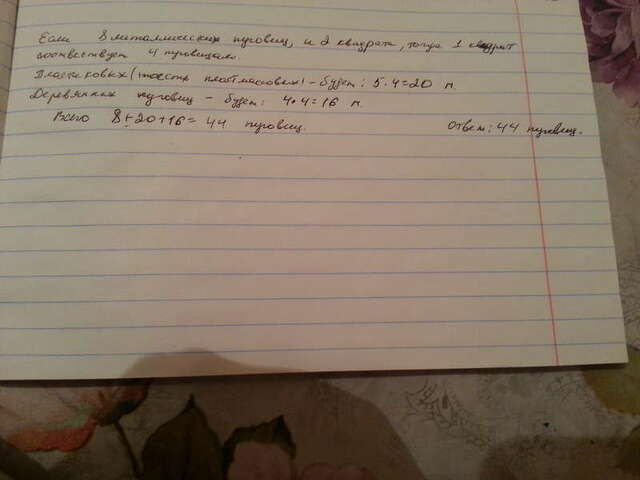 Если 8 металлических пуговиц, и 2 квадрата, тогда 1 квадрат
соответствует 4 пуговицам.
Пластиковых (тоесть пластмассовых) - будет: 5·4=20 п.
Деревянных пуговиц - будет: 4·4=16 п.
Всего 8+20+16=44 пуговиц. Ответ: 44 пуговиц.